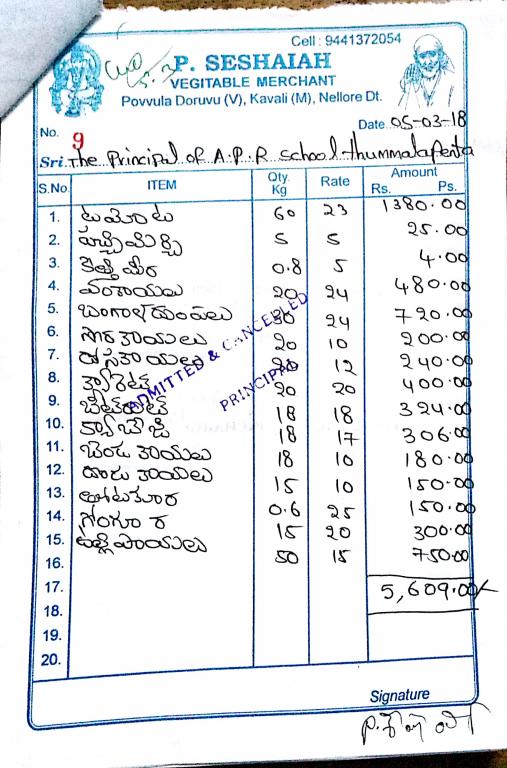 Cell : 9441372054
P. SESHAIAH
VEGITABLE MERCHANT
Povvula Doruvu (V), Kavali (M), Nellore Dt.
No. 9 Date 05-03-18
Sri. The Principal of A.P.R School-thummalapenta
S.No. ITEM Qty. Kg Rate Amount Rs. Ps.
1. టమోటు 60 23 1380.00
2. పచ్చిమిర్చి 5 5 25.00
3. కొత్తిమీర 0.8 5 4.00
4. వంకాయలు 20 24 480.00
5. బంగాళదుంపలు 30 24 720.00
6. సొరకాయలు 20 10 200.00
7. దోసకాయలు 20 12 240.00
8. క్యారెట్ 20 20 400.00
9. బీట్‌రూట్ 18 18 324.00
10. క్యాబేజి 18 17 306.00
11. బెండకాయలు 18 10 180.00
12. దొండకాయలు 15 10 150.00
13. తోటకూర 0.6 25 150.00
14. గోంగూర 15 20 300.00
15. ఉల్లిపాయలు 50 15 750.00
16.
17. 5,609.00/
18.
19.
20.
ADMITTED & CANCELLED
PRINCIPAL
Signature